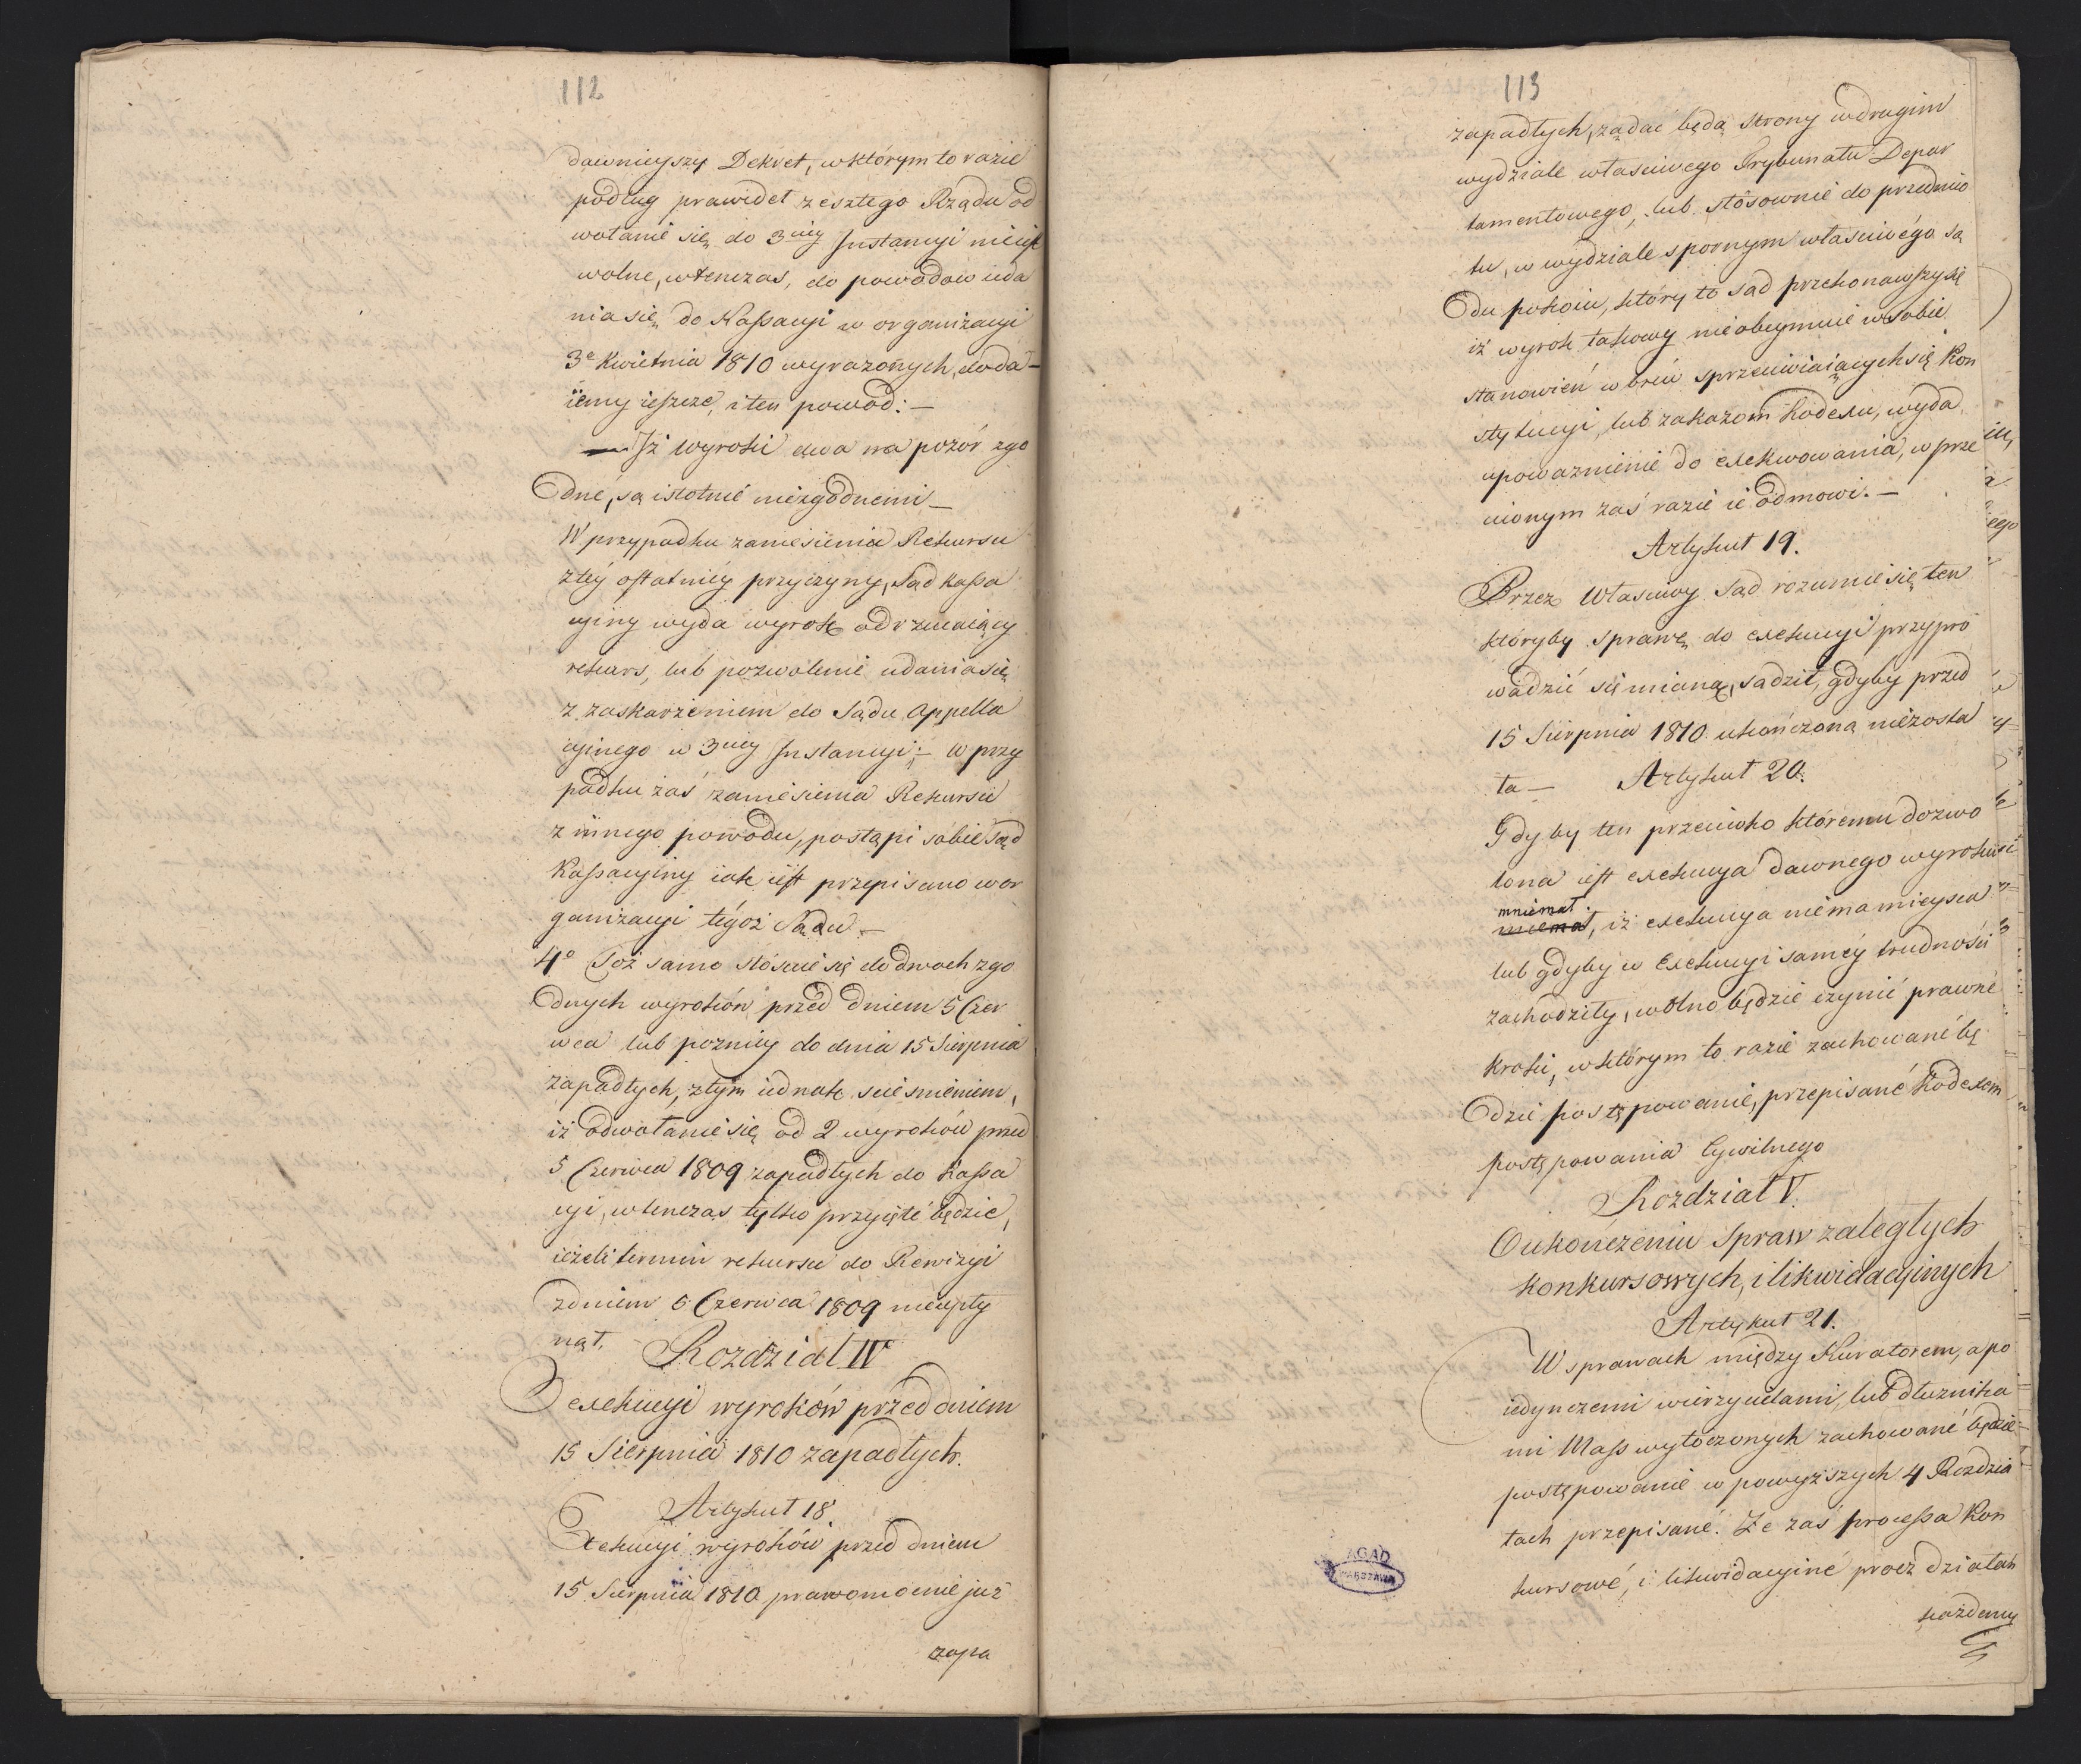 112
dawnieyszy Dekret, w którym to razie
podług prawideł zeszłego Rządu od
wołanie się do 3ciey Instancyi nie iest
wolne, wtenczas, do powodow uda
nia się do Kassacyi w organizacyi
3e Kwietnia 1810 wyrażonych, doda-
iemy ieszcze, i ten powód: —
— Iż wyroki dwa na pozór zgo
dne, są istotnie niezgodnemi —
W przypadku zaniesienia Rekursu
z tey ostatniey przyczyny, Sąd Kassa
cyiny wyda wyrok odrzucaiący
rekurs, lub pozwolenie udania się
z zaskarżeniem do Sądu Appella
cyinego w 3ciey Instancyi; — w przy
padku zaś zaniesienia Rekursu
z innego powodu, postąpi sobie Sąd
Kassacyiny iak iest przepisano w or
ganizacyi tegoż Sądu —
4o Toż samo stósuie się do dwoch zgo
dnych wyroków przed dniem 5 Czer
wca lub poźniey do dnia 15 Sierpnia
zapadłych, z tym iednak ścieśnieniem,
iż odwołanie się od 2 wyroków przed
5 Czerwca 1809 zapadłych do Kassa
cyi, wtenczas tylko przyięte będzie,
ieżeli termin rekursu do Rewizyi
z dniem 5 Czerwca 1809 nieupły
nął.
Rozdział IV
O exekucyi wyroków przed dniem
15 Sierpnia 1810 zapadłych.
Artykuł 18.
Exekucyi wyroków przed dniem
15 Sierpnia 1810 prawomocnie już
zapa
113
zapadłych, żądać będą strony w drugim
wydziale właściwego Trybunału Depar
tamentowego, lub stósownie do przedmio
tu, w wydziale spornym właściwego Są
du pokoiu, który to sąd przekonawszy się
iż wyrok takowy nieobeymuie w sobie
stanowień wbrew sprzeciwiaiących się Kon
stytucyi, lub zakazom Kodexu, wyda
upoważnienie do exekwowania, w prze
ciwnym zaś razie ie odmowi. —
Artykuł 19.
Przez Właściwy Sąd rozumie się ten
któryby sprawę do exekucyi przypro
wadzić się mianą, sądził, gdyby przed
15 Sierpnia 1810 ukończoną niezosta
ła —
Artykuł 20.
Gdyby ten przeciwko któremu dozwo
lona iest exekucya dawnego wyroku
mniemał, iż exekucya niema mieysca
lub gdyby w Exekucyi samey trudności
zachodziły, wolno będzie czynić prawne
kroki, w którym to razie zachowane bę
dzie postępowanie, przepisane Kodexem
postępowania Cywilnego
Rozdział V.
O ukończeniu Spraw zaległych
konkursowych, i likwidacyinych
Artykuł 21.
W sprawach między Kuratorem, a po
iedynczemi wierzycielami, lub dłużnika
mi Mass wytoczonych zachowane będzie
postępowanie w powyższych 4 Rozdzia
łach przepisane. Że zaś processa Kon
kursowe, i likwidacyine przez działań
każdemu
AGAD
WARSZAWA